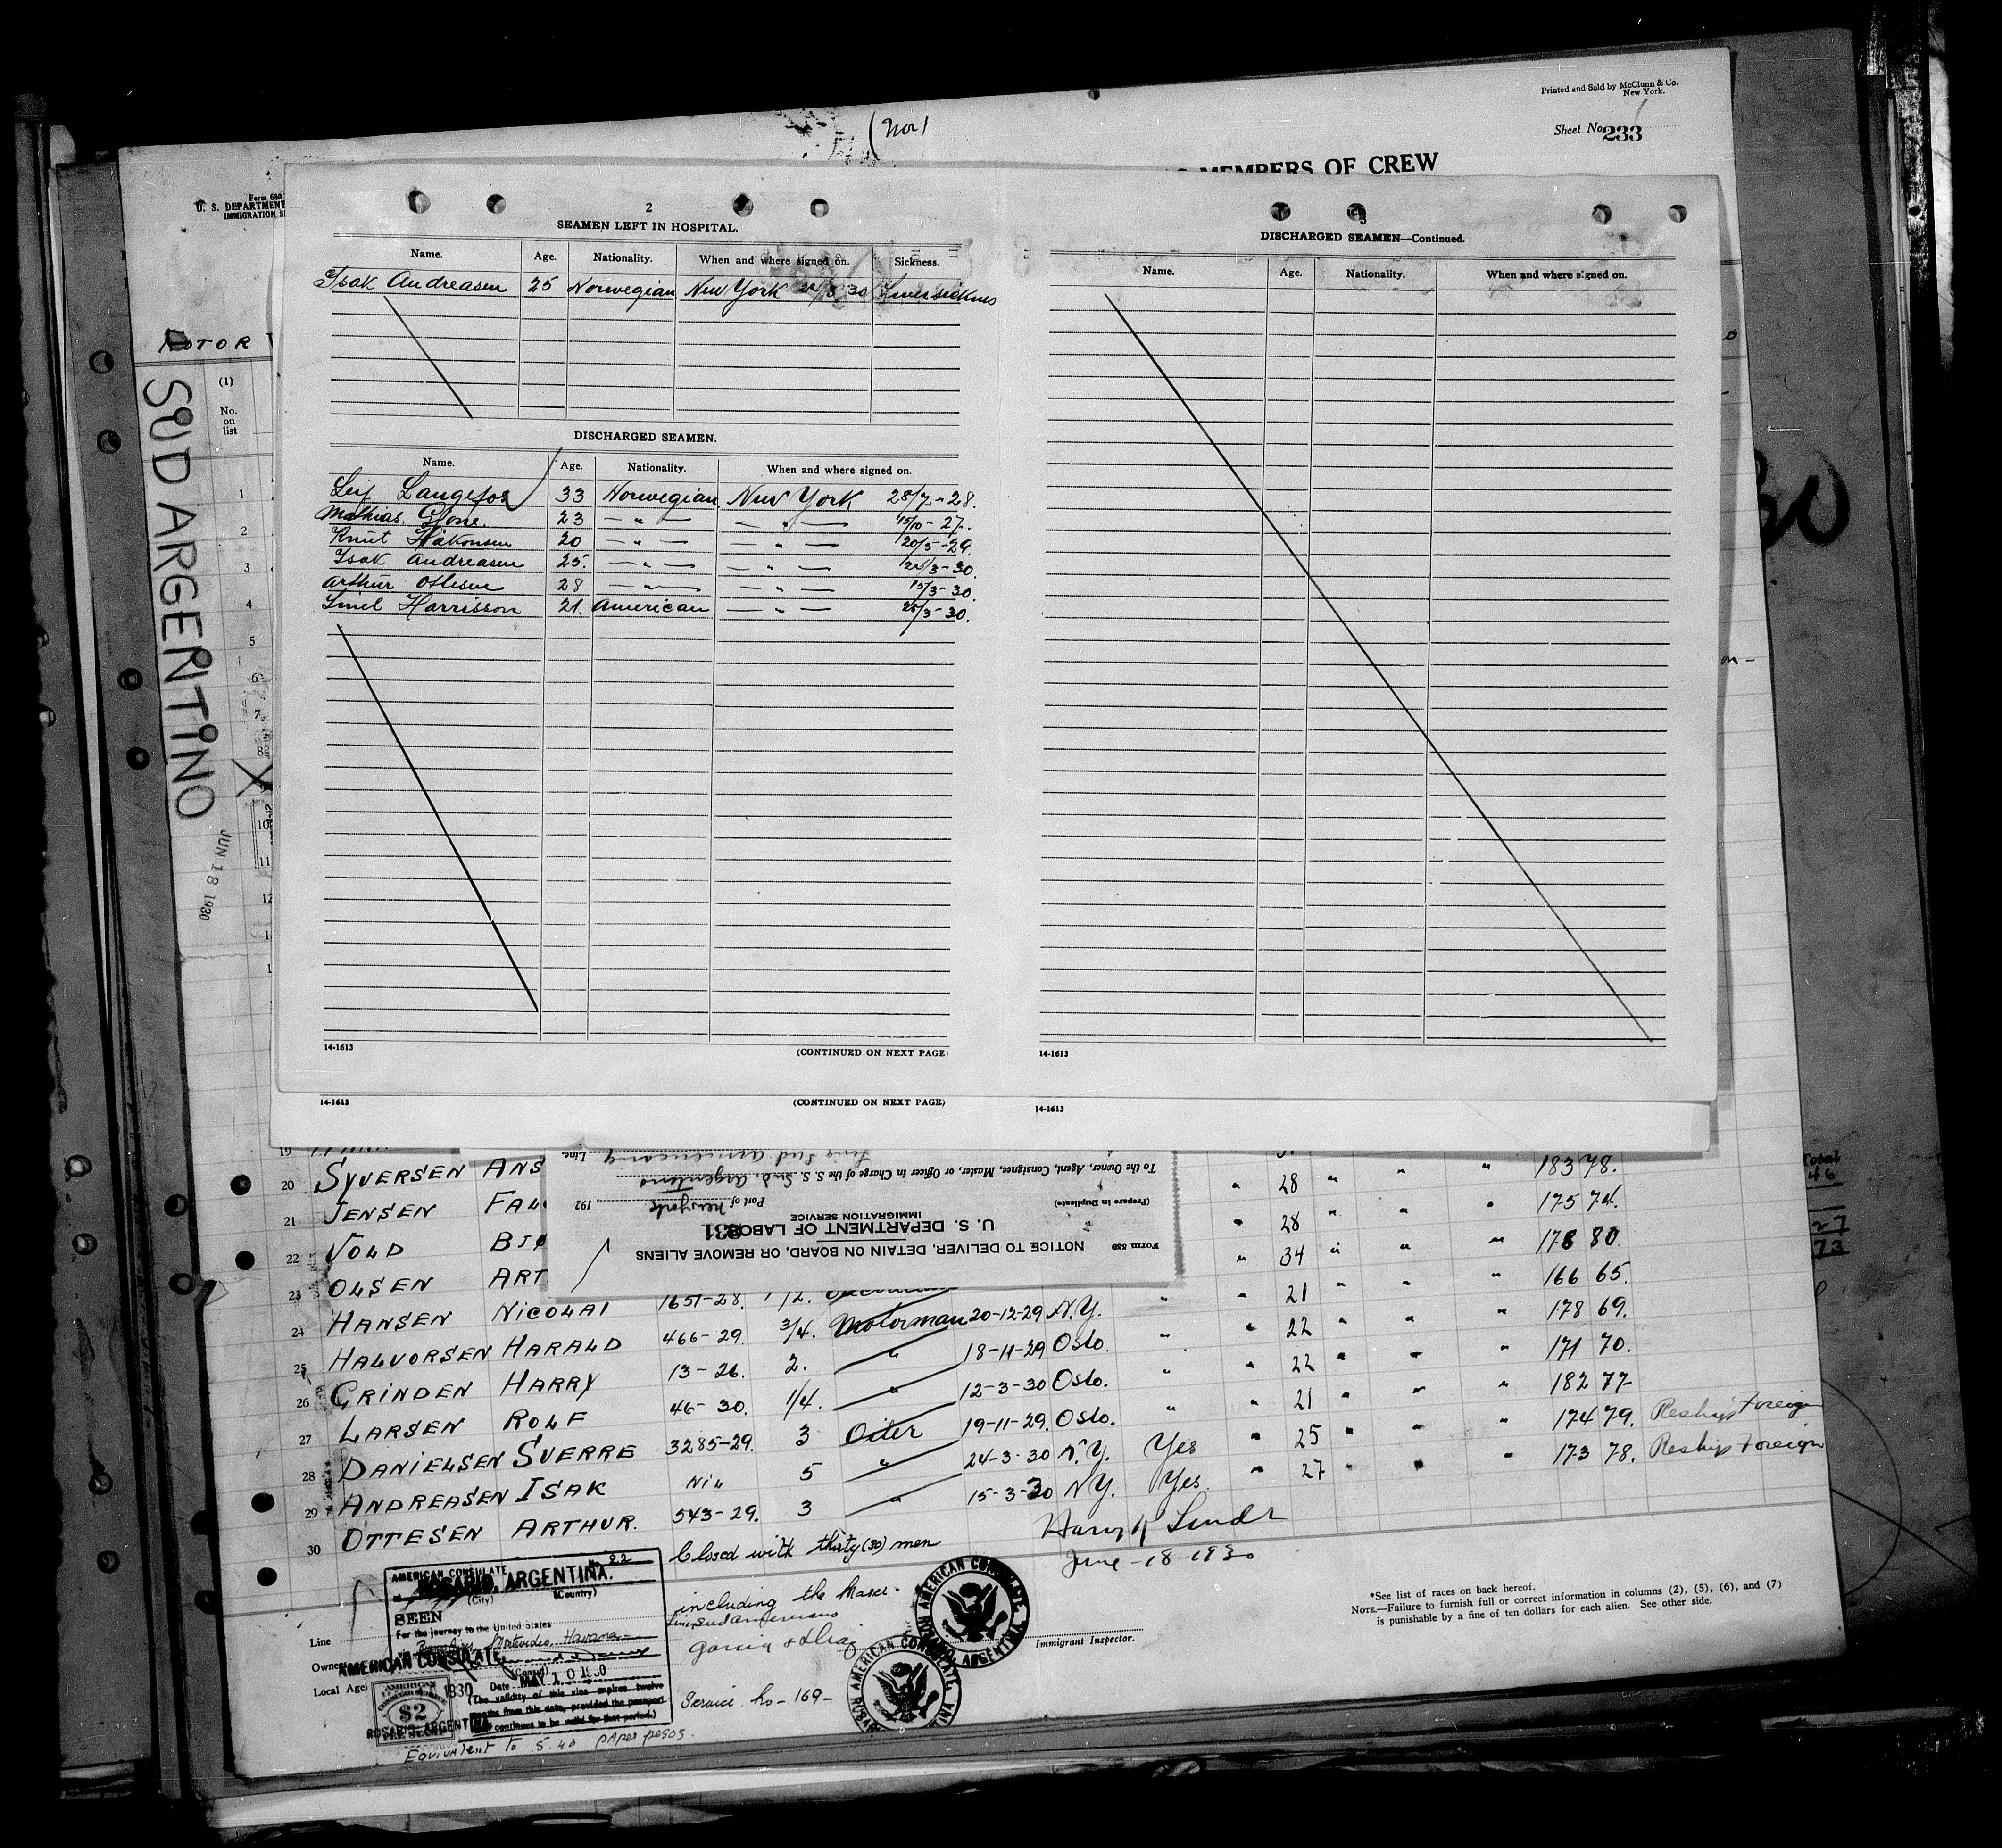 Printed and Sold by McClunn & Co.
New York.
(Nor)
Sheet No. 233
MEMBERS OF CREW
Form 680
U. S. DEPARTMENT
IMMIGRATION
MOTOR
SUD ARGENTINO
JUN 18 1930
(1)
No.
on
list
1
2
3
4
5
6
7
8
9
10
11
12
2
SEAMEN LEFT IN HOSPITAL.
Name. Age. Nationality. When and where signed on. Sickness.
Isak Andreasen 25 Norwegian New York /3 30
DISCHARGED SEAMEN.
Name. Age. Nationality. When and where signed on.
Leif Langefos 33 Norwegian New York 28/7-28.
Mathias 23 — " — — " — 15/10-27.
Knut Håkonsen 20 — " — — " — 20/5-29.
Isak Andreasen 25. — " — — " — /3-30.
Arthur Ottesen 28 — " — — " — 15/3-30.
Harrisson 21. American — " — /3-30.
14-1613 (CONTINUED ON NEXT PAGE
14-1613 (CONTINUED ON NEXT PAGE)
3
DISCHARGED SEAMEN—Continued.
Name. Age. Nationality. When and where signed on.
14-1613
14-1613
Total
46
27
73
Line
To the Owner, Agent, Consignee, Master, or Officer in Charge of the S. S. Sud Argentino
(Prepare in Duplicate)
Port of New York 192
IMMIGRATION SERVICE
U. S. DEPARTMENT OF LABOR
NOTICE TO DELIVER, DETAIN ON BOARD, OR REMOVE ALIENS
Form 559
19
20 SYVERSEN ANS " 28 " " " 183 78.
21 JENSEN FAL " 28 " " " 175 74.
22 VOLD BJØ " 34 " " " 178 80.
23 OLSEN ART " 21 " " " 166 65.
24 HANSEN NICOLAI 1651-28. 1/2. " 22 " " " 178 69.
25 HALVORSEN HARALD 466-29. 3/4. Motorman 20-12-29 N.Y. " 22 " " " 171 70.
26 GRINDEN HARRY 13-26. 2. " 18-11-29 Oslo. " 21 " " " 182 77
27 LARSEN ROLF 46-30. 1/4. " 12-3-30 Oslo.
28 DANIELSEN SVERRE 3285-29. 3 Oiler 19-11-29. Oslo. " 174 79. Reships Foreign
29 ANDREASEN ISAK Nil 5 " 24-3-30 N.Y. Yes " 25 " " " 173 78. Reships Foreign
30 OTTESEN ARTHUR. 543-29. 3 " 15-3-30 N.Y. Yes " 27
Closed with thirty (30) men
including the Master.
Harry Lund
June-18-1930
Immigrant Inspector.
Service No-169-
No. 22
AMERICAN CONSULATE
ROSARIO, ARGENTINA.
(City) (Country)
SEEN
For the journey to the United States
Montevideo, Havana
(Consul)
Date MAY 10 1930
(The validity of this visa expires twelve
months from this date, provided the passport
continues to be valid for that period.)
Line
Owners
Local Age
AMERICAN CONSULATE,
1930
ROSARIO, ARGENTINA
AMERICAN
$2
Equivalent to 5.40 paper pesos.
AMERICAN CONSULATE, ROSARIO, ARGENTINA
AMERICAN CONSULATE
*See list of races on back hereof.
NOTE.—Failure to furnish full or correct information in columns (2), (5), (6), and (7)
is punishable by a fine of ten dollars for each alien. See other side.